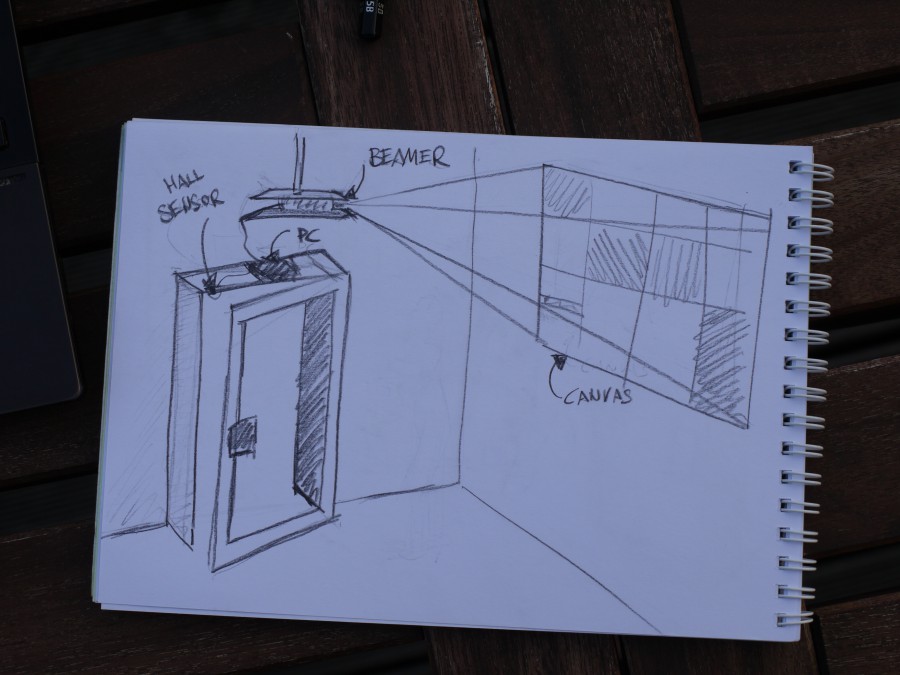 BEAMER
HALL
SENSOR
PC
CANVAS
5B